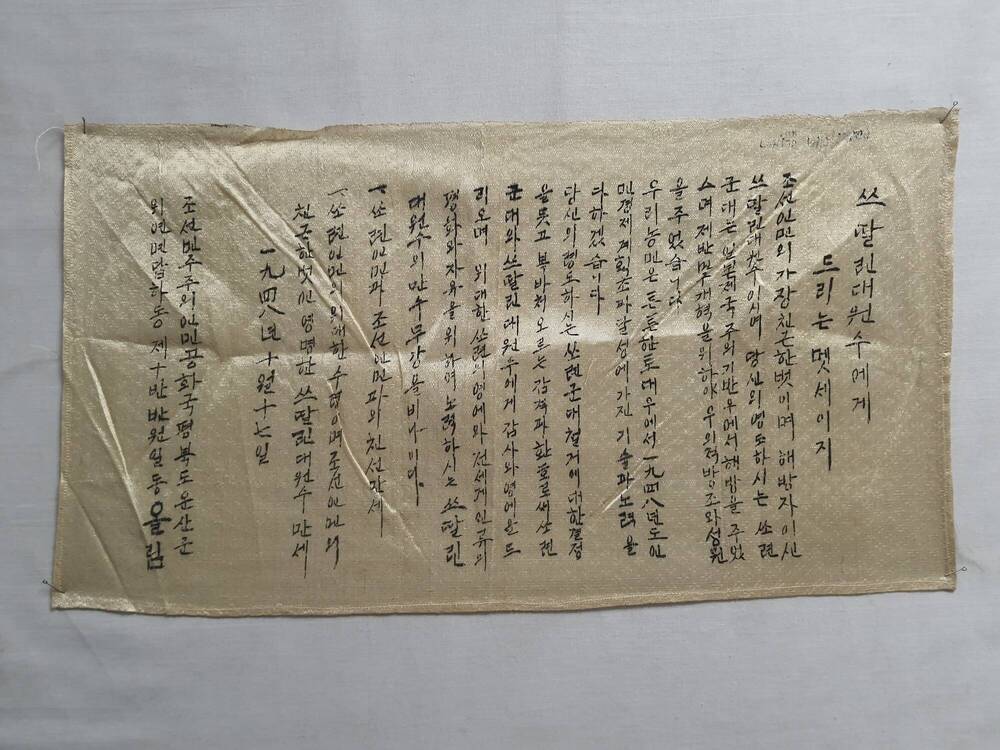 쓰딸린대원수에게
드리는 멧세이지
조선인민의 가장 친근한벗이며 해방자이신
쓰딸린대원수이시여 당신의 영도하시는 쏘련
군대는 일본제국주의 기반우에서 해방을 주었
스며 제반민주개혁을 위하야 우의적방조와 성원
을 주었습니다
우리 농민은 튼튼한 토대우에서 一九四八년도 인
민경제 계획초과달성에 가진 기술과 노력을
다하겠습니다
당신의 령도하시는 쏘련군대 철거에 대한 결정
을 듯고 북바처 오르는 감격과 환호로써 쏘련
군대와 쓰딸린대원수에게 감사와 영예을 드
리오며 위대한 쏘련의 영예와 전세계 인류의
평화와 자유을 위하여 노력하시는 쓰딸린
대원수의 만수무강을 비나이다.
一. 쏘련인민과 조선인민과의 친선만세
一. 쏘련인민의 위대한 수령이며 조선인민의
친근한 벗인 영명한 쓰딸린대원수 만세
一九四八년 十월 十七일
조선민주주의인민공화국 평북도 운산군
위연면 답하동 제十반 반원일동 올림